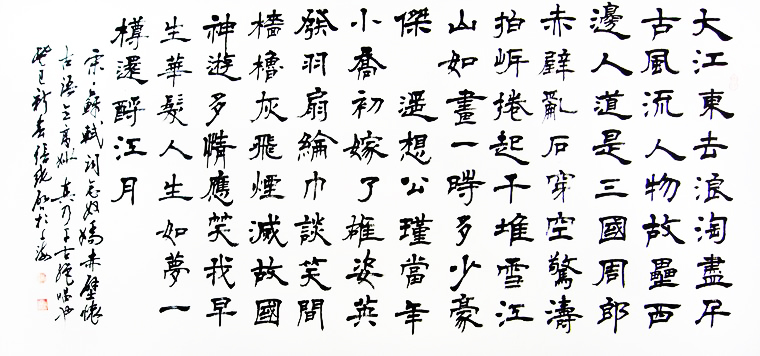 大江東去浪淘盡千
古風流人物故壘西
邊人道是三國周郎
赤壁亂石穿空驚濤
拍岸捲起千堆雪江
山如畫一時多少豪
傑 遥想公瑾當年
小喬初嫁了雄姿英
發羽扇綸巾談笑間
檣櫓灰飛煙滅故國
神遊多情應笑我早
生華髮人生如夢一
樽還酹江月
宋蘇軾詞念奴嬌赤壁懷
古語言高妙真乃千古絕唱也
癸巳新春張於上海